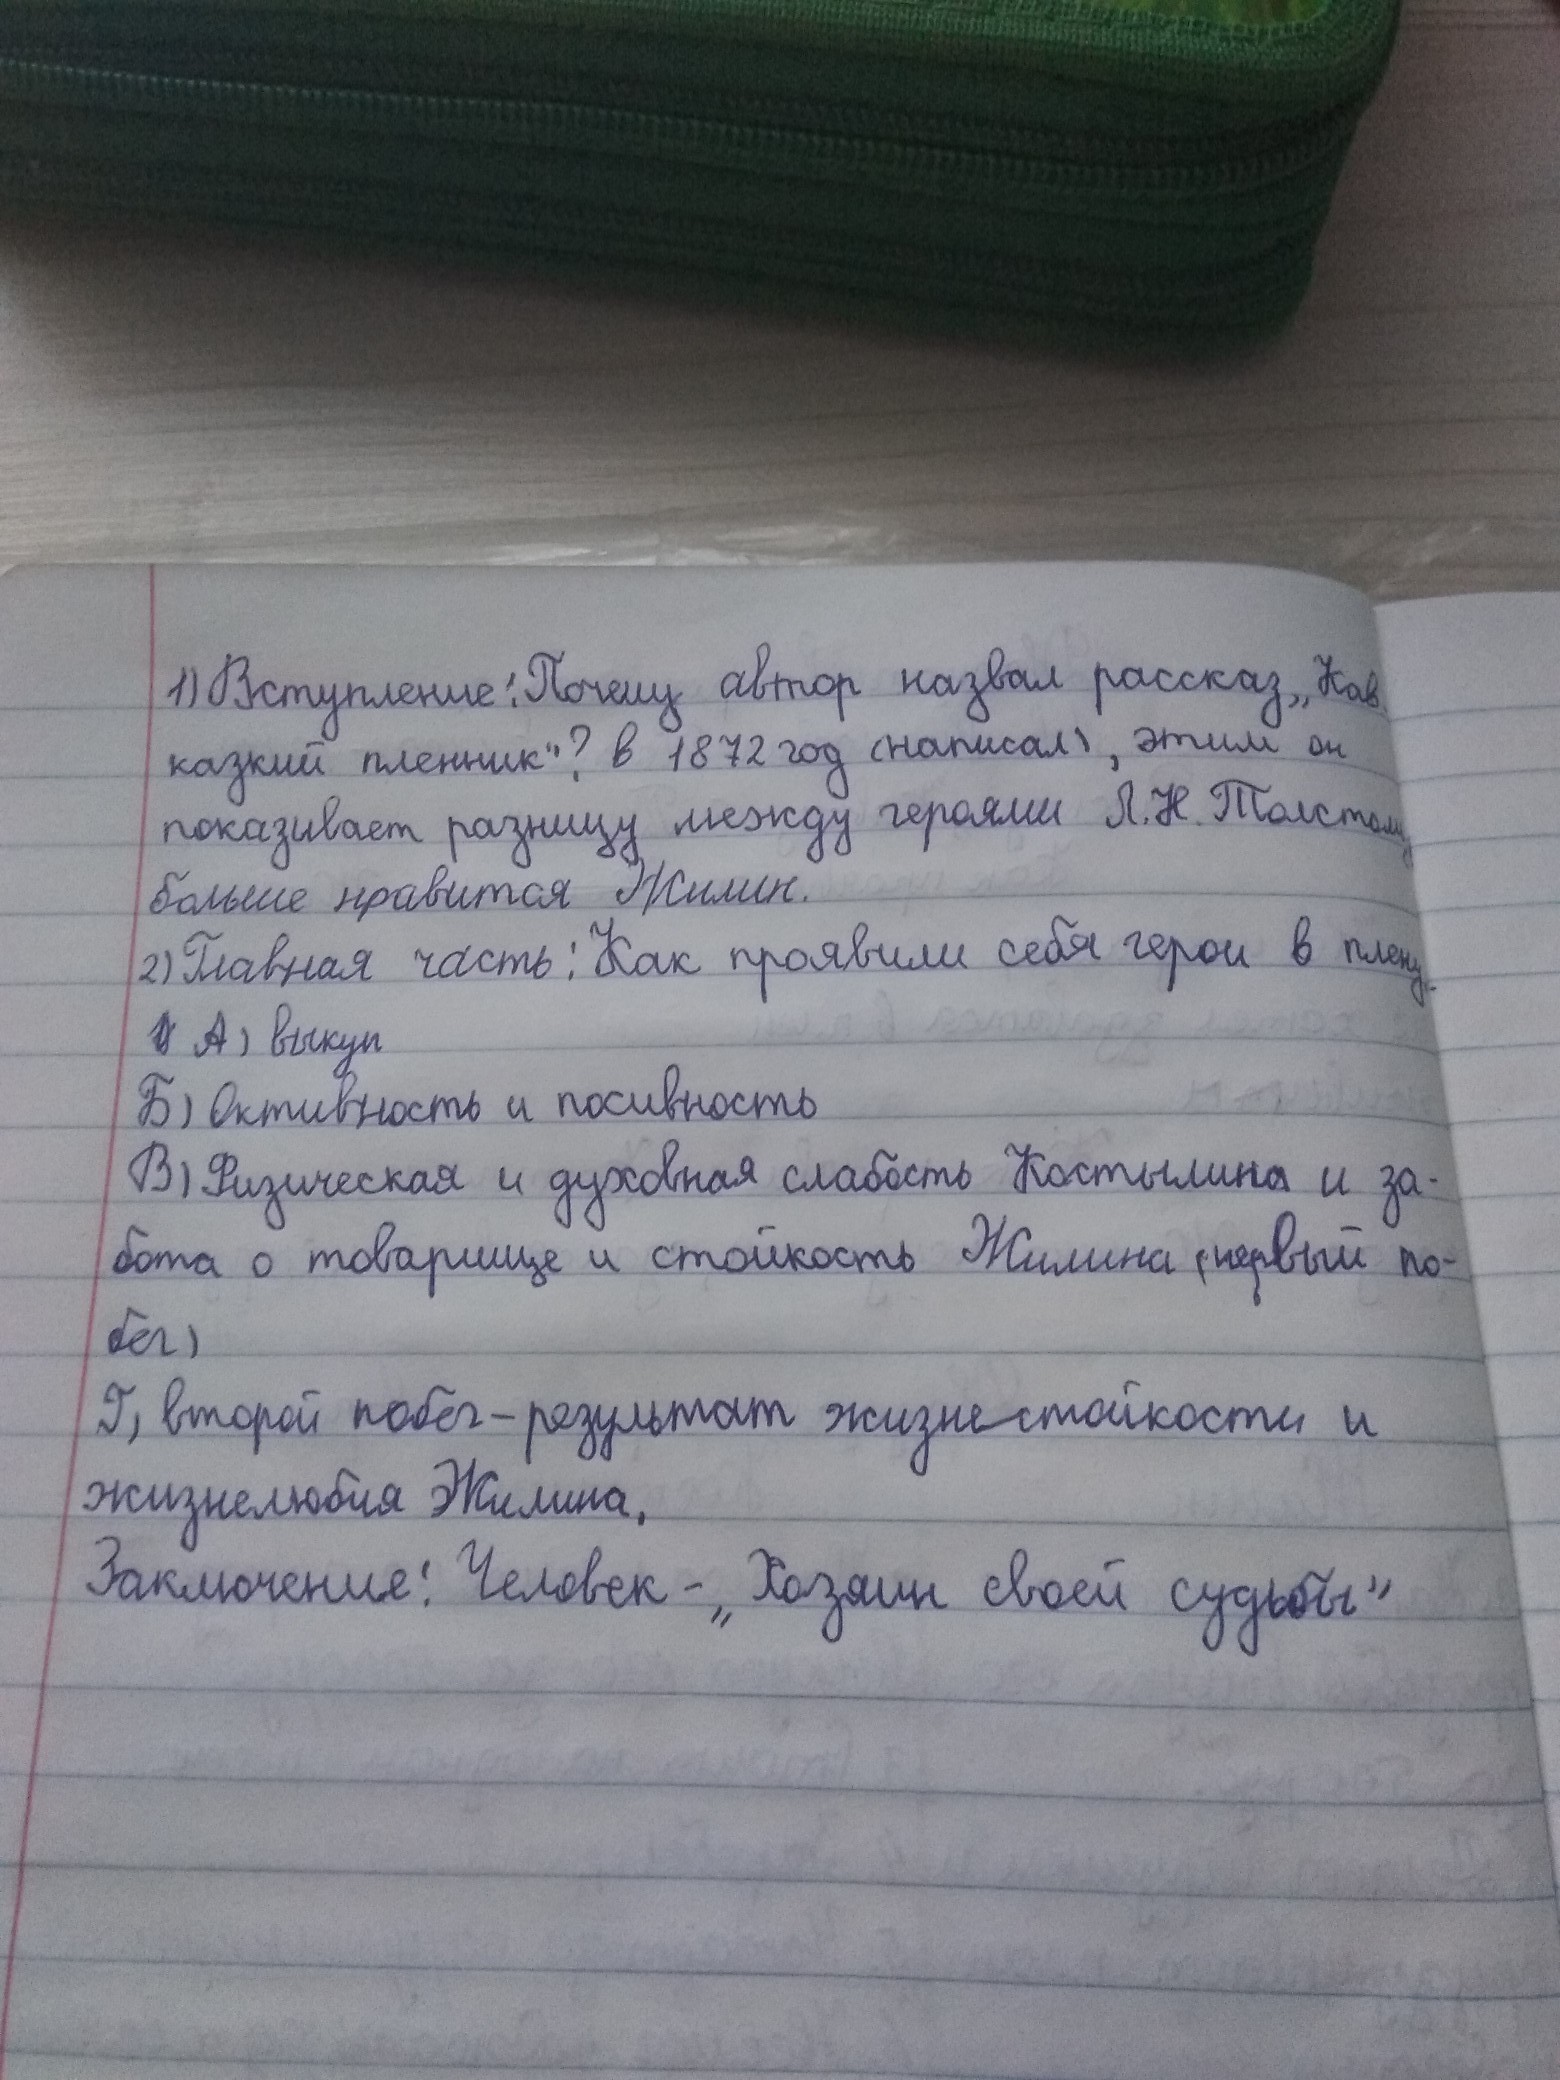 1) Вступление: Почему автор назвал рассказ „Кав-
казкий пленник"? в 1872 год (написал), этим он
показивает разницу между героями Л.Н. Толстому
больше нравится Жилин.
2) Главная часть: Как проявили себя герои в плену.
А) выкуп
Б) Активность и посивность
В) Физическая и духовная слабость Костылина и за-
бота о товарище и стойкость Жилина (первый по-
бег)
Г) второй побег - результат жизнестойкости и
жизнелюбия Жилина.
Заключение: Человек - „Хозяин своей судьбы"